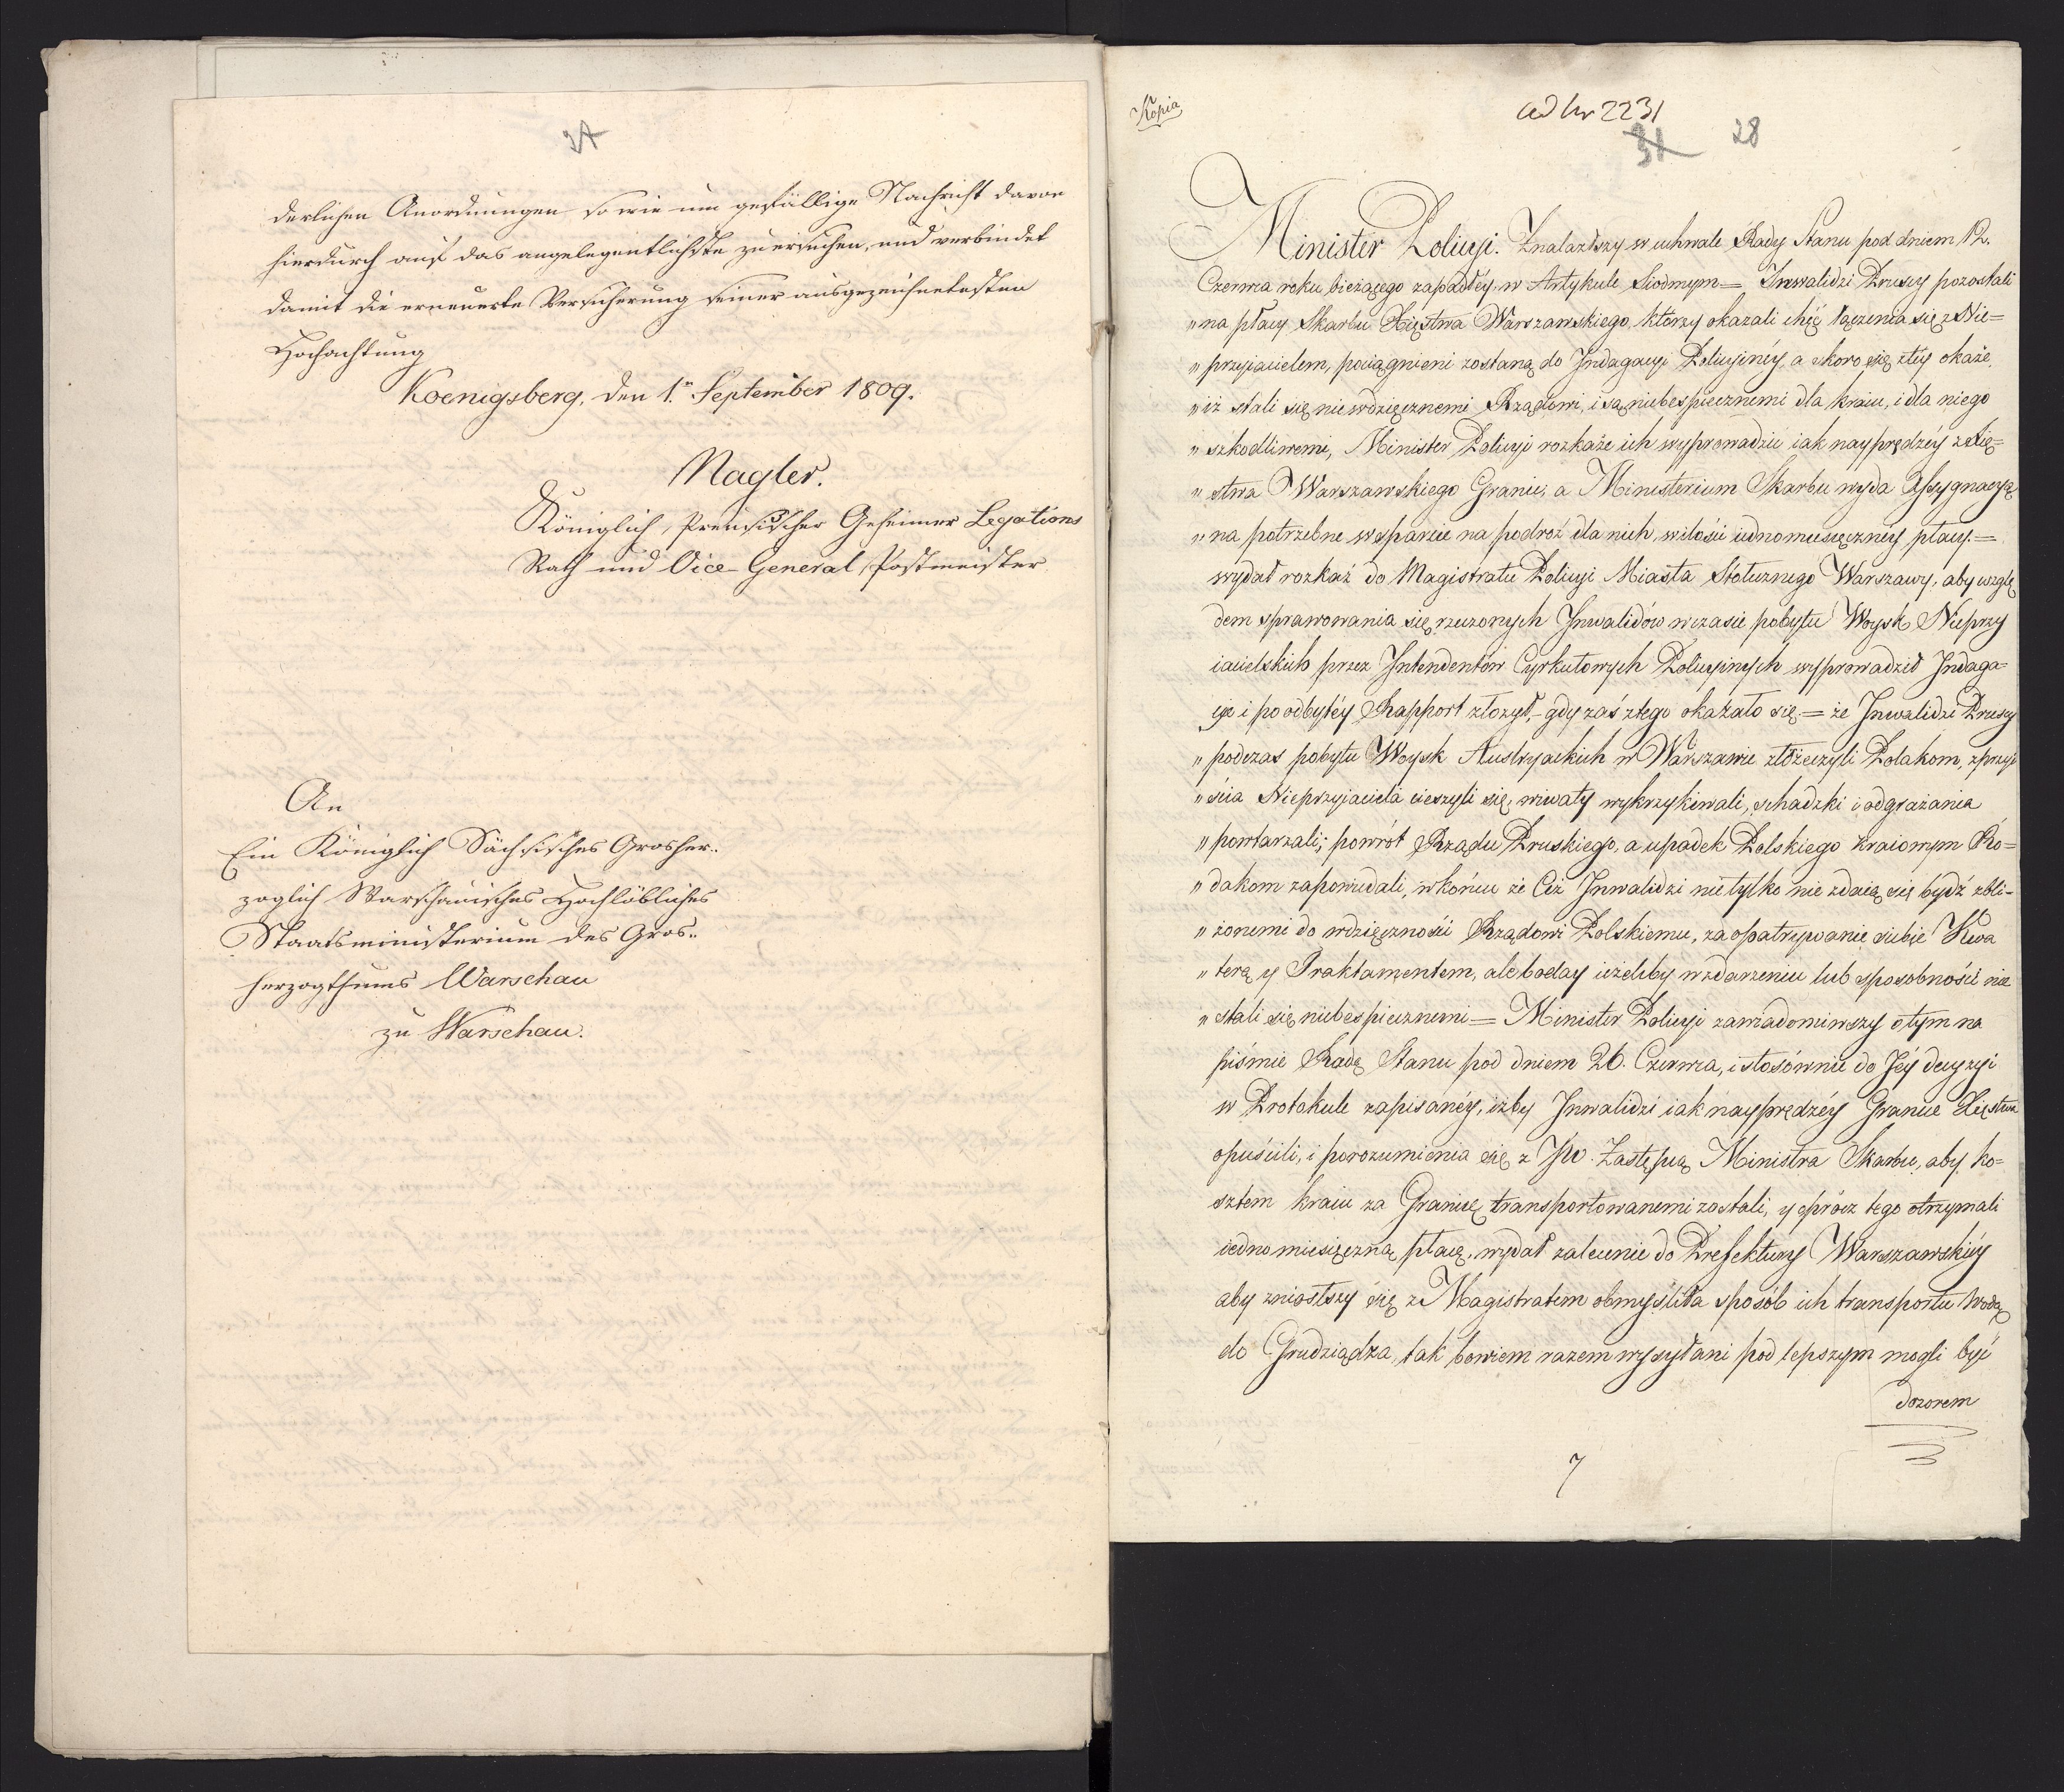 derlichen Anordnungen so wie um gefällige Nachricht davon
hierdurch auf das angelegentlichste zu ersuchen, und verbindet
damit die erneuerte Versicherung seiner ausgezeichnetesten
Hochachtung
Koenigsberg, den 1.n September 1809.
Nagler.
Königlich, Preusischer Geheimer Legations
Rath und Vice-General, Postmeister
An
Ein Königlich Sächsisches Grosher..
zoglich Warschauisches Hochlöbliches
Staatsministerium des Gros..
herzogthums Warschau
zu Warschau.
Kopia
ad Nr 2231
31 28
Minister Policyi. Znalazłszy w uchwale Rady Stanu pod dniem 12.
Czerwca roku bieżącego zapadłéy, w Artykule Siodmym = Inwalidzi Pruscy pozostali
„na płacy Skarbu Xięstwa Warszawskiego, którzy okazali chęć łączenia się z Nie=
„przyjacielem, pociągnieni zostaną do Indagacyi Policyinéy, a skoro się z téy okaże,
„iż stali się niewdzięcznemi Rządowi, i są niebespiecznemi dla kraiu, i dla niego
„szkodliwemi, Minister Policyi rozkaże ich wyprowadzić iak nayprędzéy z Xię=
„stwa Warszawskiego Granic, a Ministerium Skarbu wyda Assygnacyą
„na potrzebne wsparcie na podroż dla nich, w ilości iednomiesięcznéy płacy. =
wydał rozkaż do Magistratu Policyi Miasta Stołecznego Warszawy, aby wzglę
dem sprawowania się rzeczonych Inwalidów w czasie pobytu Woysk Nieprzy
iacielskich przez Intendentów Cyrkułowych Policyinych wyprowadził Indaga=
cye i po odbytéy Rapport złożył, - gdy zaś z tego okazało się = że Inwalidzi Pruscy
„podczas pobytu Woysk Austryackich w Warszawie złożeczyli Polakom, z przyi
„ścia Nieprzyiaciela cieszyli się, wiwaty wykrzykiwali, schadzki i odgrażania
„powtarzali; powrót Rządu Pruskiego, a upadek Polskiego kraiowym Ro=
„dakom zapowiedali, w końcu że Ciż Inwalidzi nie tylko nie zdaią się bydź zbli-
„żonemi do wdzięczności Rządowi Polskiemu, za opatrzywanie siebie Kwa
„terą y Traktamentem, ale boday ieżeliby w zdarzeniu lub sposobności nie
„stali się niebespiecznemi = Minister Policyi zawiadomiwszy o tym na
piśmie Radę Stanu pod dniem 26. Czerwca, i stosównie do Jéy decyzyi
w Protokule zapisanéy, iżby Inwalidzi iak nayprędzéy Granice Xięstwa
opuścili, i porozumienia się z JW. Zastępcą Ministra Skarbu, aby ko=
sztem kraiu za Granicę transportowanemi zostali, y oprócz tego otrzymali
iednomiesięczną płacę, wydał zalecenie do Prefektury Warszawskiéy
aby zniosłszy się z Magistratem obmyśliła sposób ich transportu wodą
do Grudziądza, tak bowiem razem wysyłani pod lepszym mogli być
dozorem
7